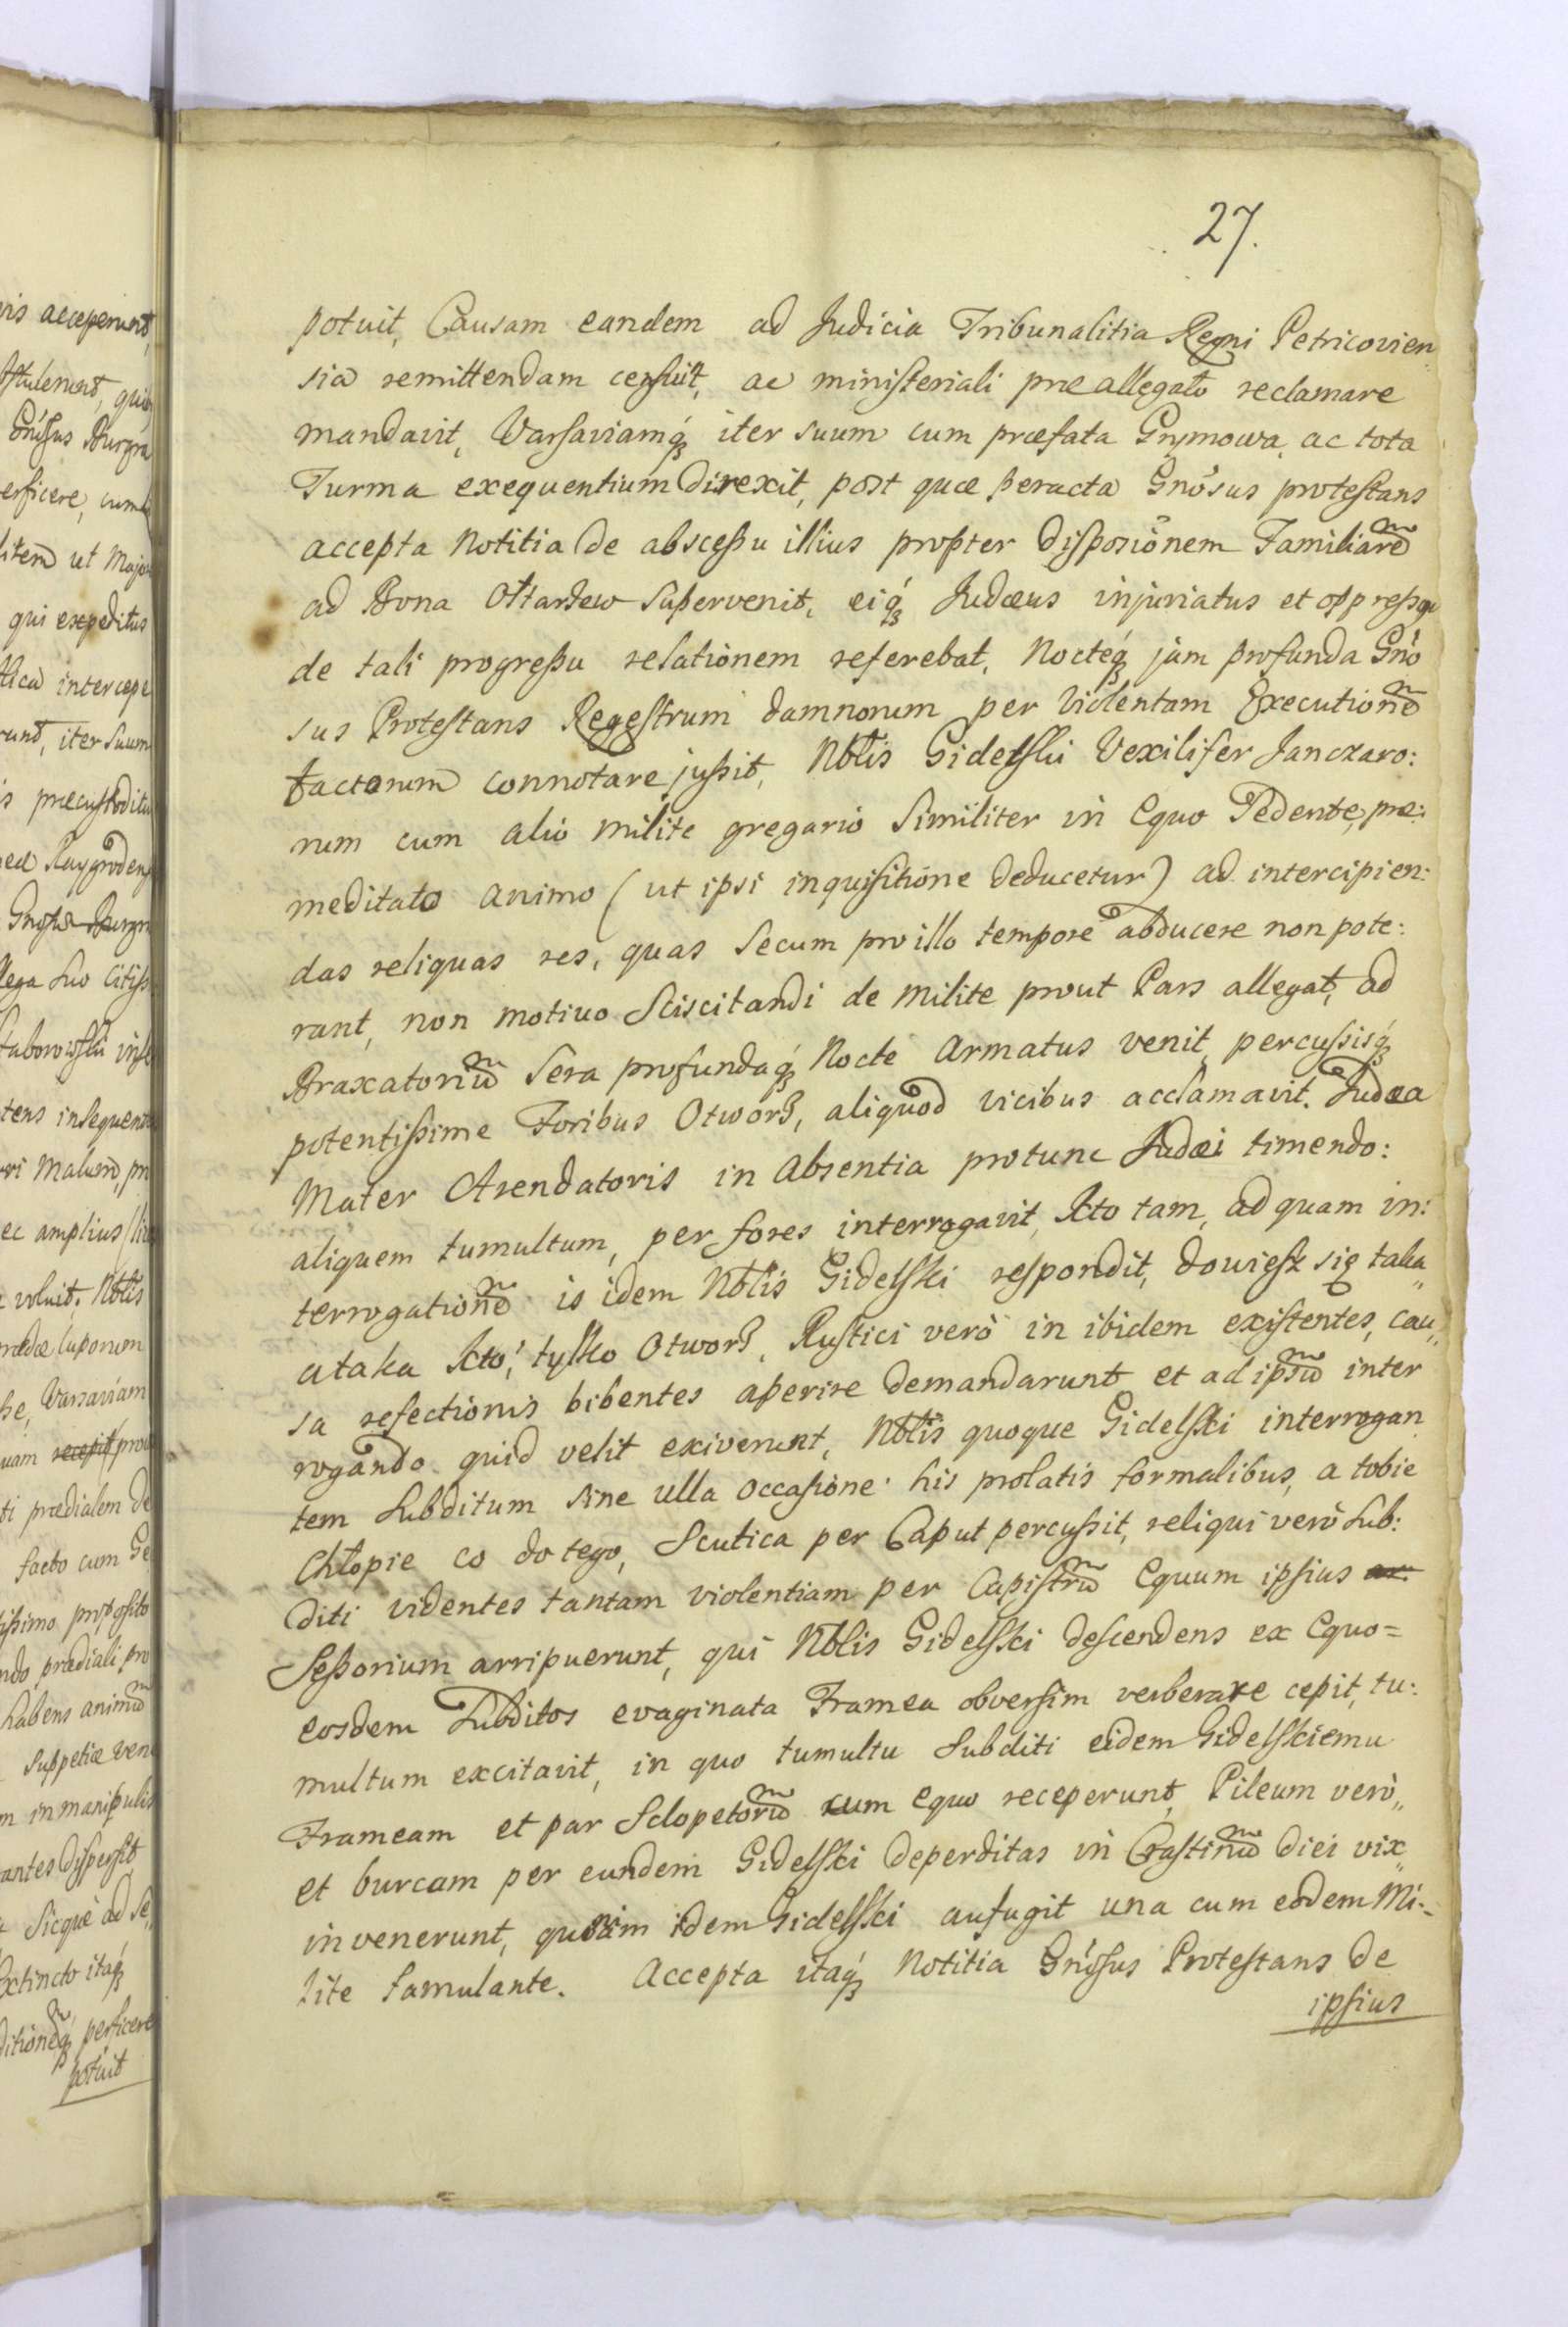 27.
potuit, Causam eandem ad Judicia Tribunalitia Regni Petricovien
sia remittendam censuit, ac ministeriali præallegato reclamare
mandavit, Varsaviamq́ꝫ iter suum cum præfata Grymowa, ac tota
Turma exequentium direxit, post quæ peracta Gnŏsus protestans
accepta Notitia de abscessu illius propter Disposiönem Familiarē
ad Bona Ołtarzew supervenit, eiq́ꝫ Judæus injuriatus et oppressus
de tali progressu relationem referebat, Nocteq́ꝫ jam profunda Gnö
sus Protestans Regestrum damnorum per violentam Executionē
factorum connotare jussit, Nblis Gidelski Vexilifer Janczaro:
rum cum alio milite gregario similiter in Equo Sedente, præ:
meditato animo (ut ipsi inquisitione deducetur) ad intercipien:
das reliquas res, quas secum pro illo tempore abducere non pote:
rant, non motivo sciscitandi de milite prout Pars allegat, ad
Braxatoriū sera profundaq́ꝫ Nocte armatus venit, percussisq́ꝫ
potentissime Foribus Otworz, aliquod vicibus acclamavit. Judæa
Mater Arendatoris in absentia protunc Judæi timendo:
aliquem tumultum, per fores interrogavit, Kto tam, ad quam in:
terrogationē is idem Nblis Gidelski respondit, dowiesz się taka„
ataka kto, tylko Otworz, Rustici verò in ibidem existentes, cau„
sa refectionis bibentes aperire demandarunt et ad ipsū inter
rogando quid velit exiverunt, Nblis quoque Gidelski interrogan
tem Subditum sine ulla occasione his prolatis formalibus, a tobie
Chłopie co do tego, Scutica per Caput percussit, reliqui verò Sub:
diti videntes tantam violentiam per Capistrū Equum ipsius ar:
Sessorium arripuerunt, qui Nblis Gidelski descendens ex Equo=
eosdem Subditos evaginata Framea obversim verberare cepit, tu:
multum excitavit, in quo tumultu Subditi eidem Gidelskiemu
Frameam et par Sclopetorū cum Equo receperunt, Pileum verò„
et burcam per eundem Gidelski deperditas in Crastinū diei vix„
invenerunt, quoniam idem Gidelski aufugit una cum eodem Mi:
lite famulante. Accepta itaq́ꝫ Notitia Gnŏsus Protestans de
ipsius
vis acceperunt,
Gnŏsus Burgra
qui expeditus
runt, iter suum
tens insequen
ec amplius
voluit. Nblis
Varsaviam
ti prædialem de
facto cum Ge
issimo proposito
ndo prædiali pro
habens animū
Suppetiæ ven
m in manipulis
antes dispersit
Sicquè ad se
Extincto itaq́ꝫ
perficere
potuit